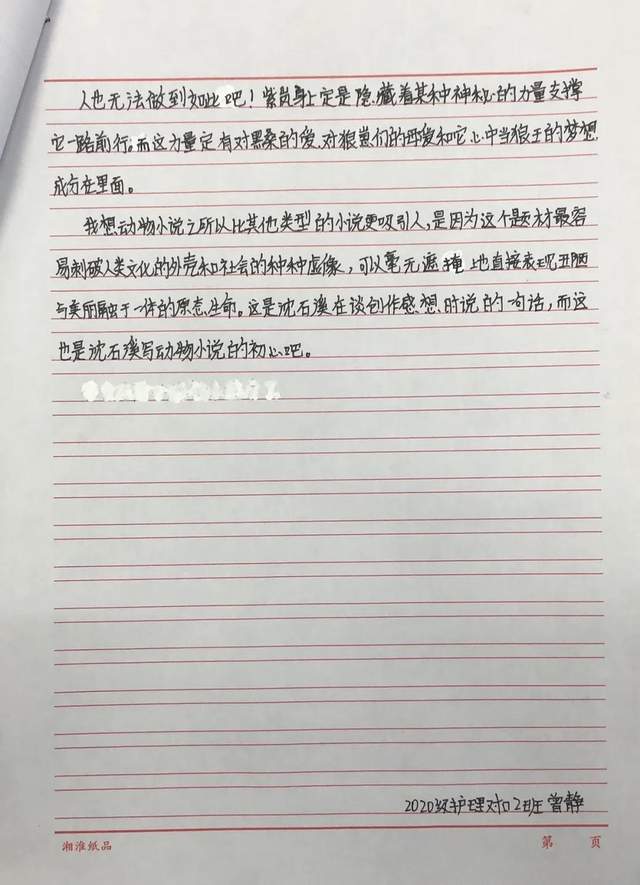 人也无法做到如此吧！紫岚身上定是隐藏着某种神秘的力量支撑
它一路前行。而这力量定有对黑桑的爱、对狼崽们的母爱和它心中当狼王的梦想
成分在里面。
我想动物小说之所以比其他类型的小说更吸引人,是因为这个题材最容
易刺破人类文化的外壳和社会的种种虚像，可以毫无遮掩地直接表现丑陋
与美丽融于一体的原态生命。这是沈石溪在谈创作感想时说的一句话,而这
也是沈石溪写动物小说的初心吧。
2020级护理对口2班 曾静
湘淮纸品
第 页